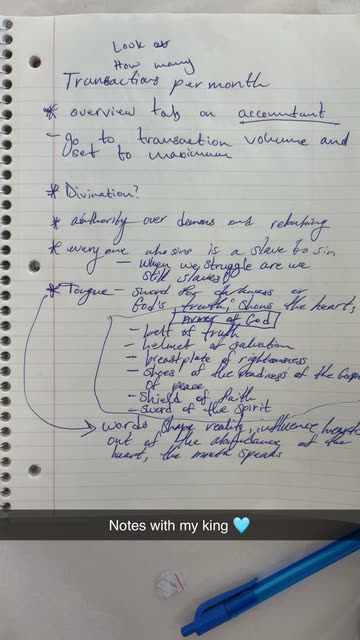 Look at
How many
Transactions per month
* overview tab on accountant
- go to transaction volume and
set to maximum
* Divination?
* authority over demons and rebuking
* everyone who sins is a slave to sin
when we struggle are we
still slaves?
* Tongue - sword for darkness or
God's truth, shows the heart,
Armor of God
- belt of truth
- helmet of salvation
- breastplate of righteousness
- shoes of the readiness of the Gospel
of peace
- shield of faith
- sword of the spirit
words shape reality, influence
out of the abundance of the
heart, the mouth speaks
Notes with my king 🩵